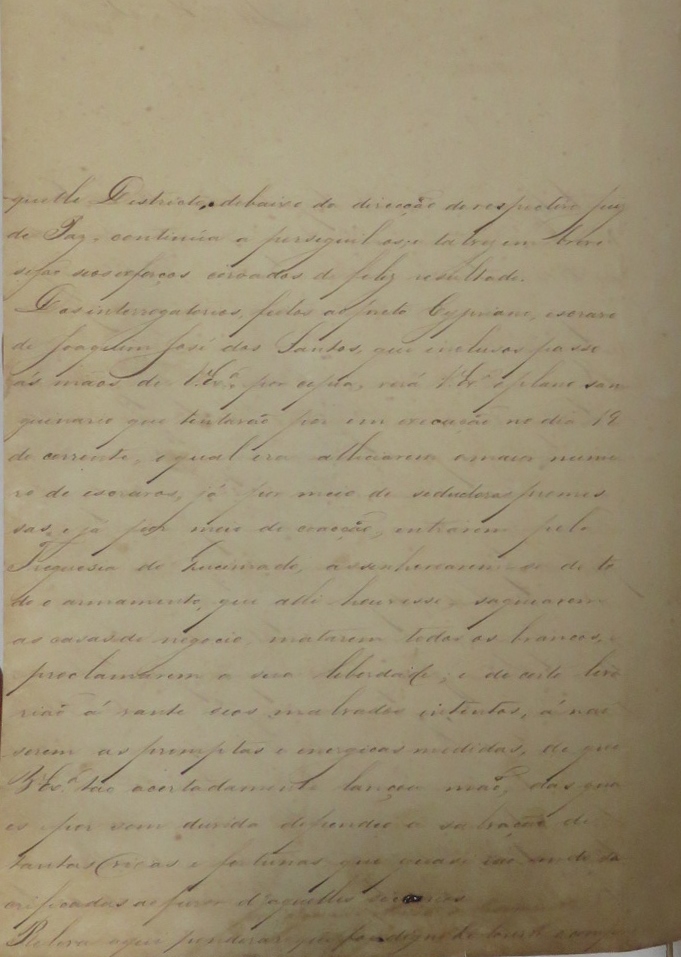 quelle Districto, debaixo da direcção do respectivo Juiz
de Paz, continúa a perseguil-os, e talvez em breve
sejão seos esforços coroados de feliz resultado.
Dos interrogatorios, feitos ao preto Cypriano, escravo
de Joaquim José dos Santos, que inclusos passo
ás mãos de V. Exª. por copia, verá V. Exª o plano san
guinario que tentarão por em execução no dia 19
do corrente, o qual era alliciarem o maior nume
ro de escravos, já por meio de seductoras promes
sas, e já por meio de coacção, entrarem pela
Freguesia do Queimado, assenhorearem-se de to
do o armamento, que alli houvesse, saquearem
as casas de negocio, matarem todos os brancos,
e proclamarem a sua liberdade; e de certo leva
rião á vante seos malvados intentos, á não
serem as promptas e energicas medidas, de que
V. Exª tão acertadamente lançou mão, das qua
es por sem duvida dependeo a salvação de
tantas vidas e fortunas que quasi são sa
crificadas ao furor d'aquelles
Releva aqui ponderar que foi digno de louvor